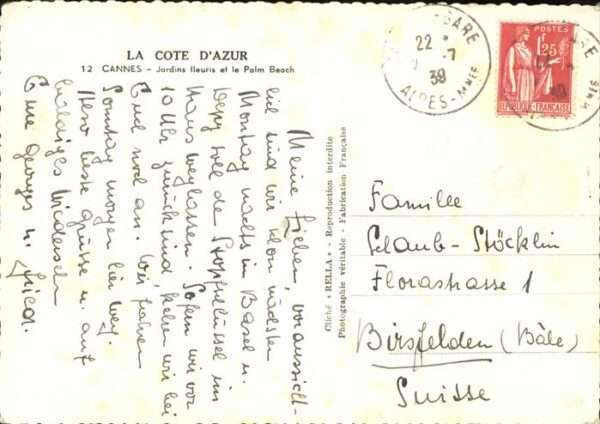 LA COTE D'AZUR
12 CANNES – Jardins fleuris et le Palm Beach
Meine Lieben, voraussicht-
lich sind wir schon nächsten
Montag nachts in Basel u.
Depy soll den Stopfschlüssel im
Haus weglassen. Sofern wir vor
10 Uhr zurück sind, kehren wir bei
Euch noch an. Wir fahren
Sonntag morgen hier weg.
Also beste Grüsse u. auf
baldiges Wiedersehen
Eure Georges u. Gricor.
Cliché "RELLA" - Reproduction Interdite
Photographie véritable - Fabrication Française
GARE
22
7
39
ALPES-MMES
POSTES
1F25
REPUBLIQUE FRANÇAISE
Familie
Schaub-Stöcklin
Florastrasse 1
Birsfelden (Bâle)
Suisse